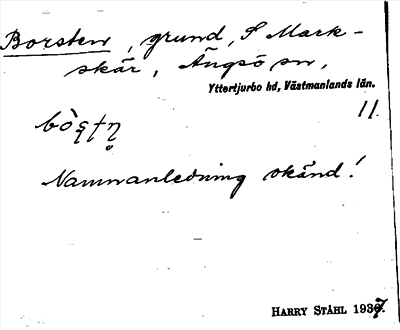 Borsten, grund, S Mark-
skär, Ängsö sn,
Yttertjurbo hd, Västmanlands län.
11.
bò̀ʂʈn̥
Namnanledning okänd!
HARRY STÅHL 1937.